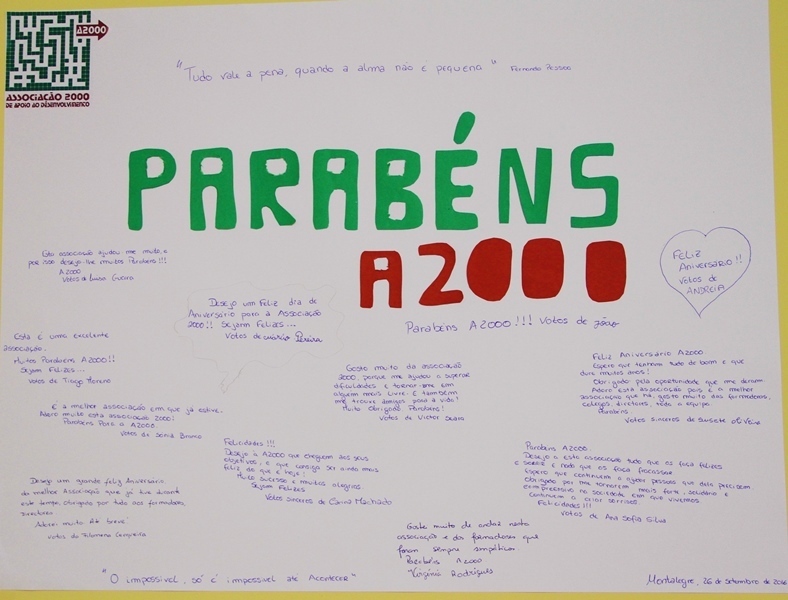 A2000
ASSOCIAÇÃO 2000
DE APOIO AO DESENVOLVIMENTO
"Tudo vale a pena, quando a alma não é pequena" Fernando Pessoa
PARABÉNS
A2000
Esta associação ajudou-me muito, e
por isso desejo-lhe muitos Parabéns!!!
A2000
Votos de Luísa Guerra
Desejo um Feliz dia de
Aniversário para a Associação
2000!! Sejam Felizes...
Votos de Mário Pereira
FELIZ
ANIVERSÁRIO!!
VOTOS DE
ANDREIA
Parabéns A2000!!! Votos de João
Esta é uma excelente
associação.
Muitos Parabéns A2000!!
Sejam Felizes...
Votos de Tiago Moreno
Gosto muito da associação
2000, porque me ajudou a superar
dificuldades e tornar-me em
alguém mais livre. E também
me trouxe amigos para a vida!
Muito Obrigado, Parabéns!
Votos de Victor
Feliz Aniversário A2000
Espero que tenham tudo de bom e que
dure muitos anos!
Obrigado pela oportunidade que me deram.
Adoro esta associação pois é a melhor
associação que há, gosto muito das formadoras,
colegas, diretores, toda a equipa.
Parabéns.
Votos sinceros de
É a melhor associação em que já estive.
Adoro muito esta associação 2000!
Parabéns Para a A2000
Votos de Sónia Branco
Felicidades!!!
Desejo à A2000 que cheguem aos seus
objetivos, e que consiga ser ainda mais
feliz do que é hoje!
Muito sucesso e muitas alegrias.
Sejam Felizes
Votos sinceros de Carina Machado
Parabéns A2000
Desejo a esta associação tudo que os faça felizes
e sorrir e nada que os faça fracassar
Espero que continuem a ajudar pessoas que dela precisem.
Obrigado por me tornarem mais forte, solidária e
compreensiva na sociedade em que vivemos.
Continuem a criar sorrisos.
Felicidades!!!
Votos de Ana Sofia Silva
Desejo um grande feliz Aniversário
da melhor Associação que já tive durante
este tempo, obrigado por tudo aos formadores,
directora
Adorei muito. Até breve!
votos da Filomena Cerqueira
Gosto muito de andar nesta
associação e das formadoras que
foram sempre simpáticas
Parabéns A2000
Virgínia Rodrigues
"O impossível, só é impossível até Acontecer"
Montalegre, 26 de setembro de